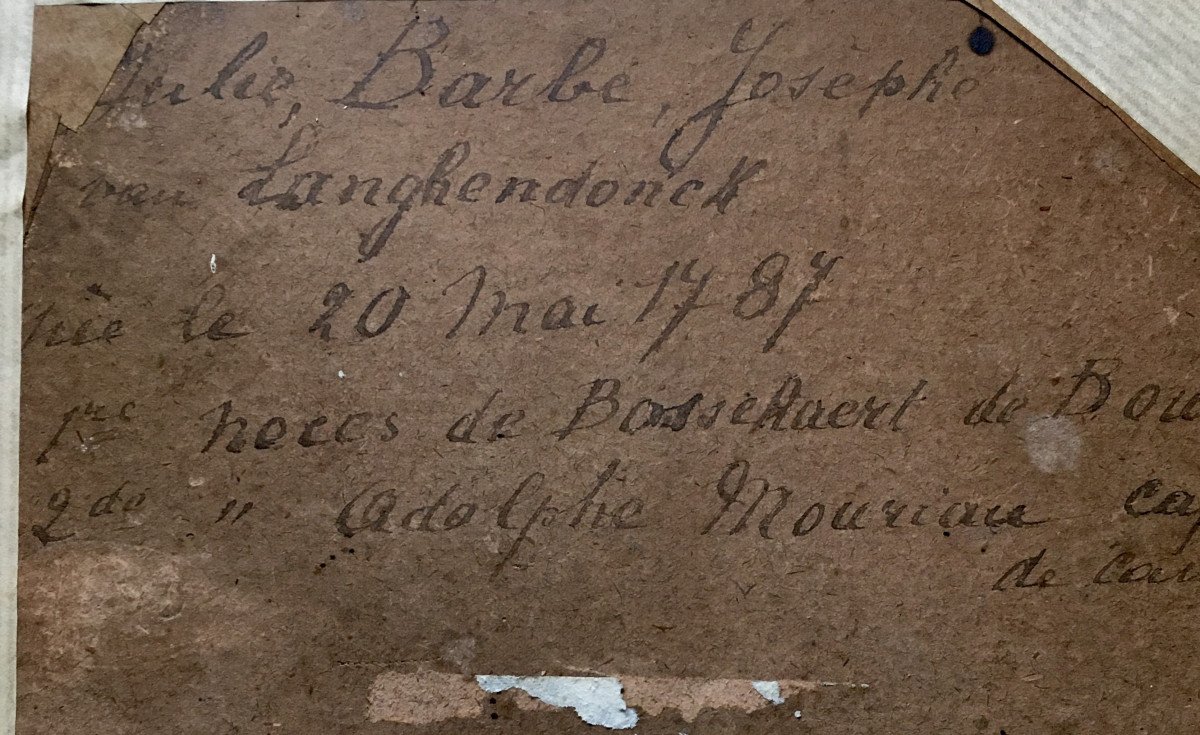 Julie, Barbe, Josephe
van Langhendonck
née le 20 Mai 1787
1re noces de Bosschaert de Bou
2de " Adolphe Mouriau cap
de cav